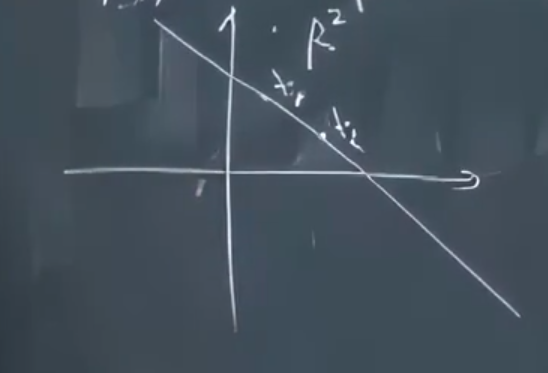 R²
x₁
x₂